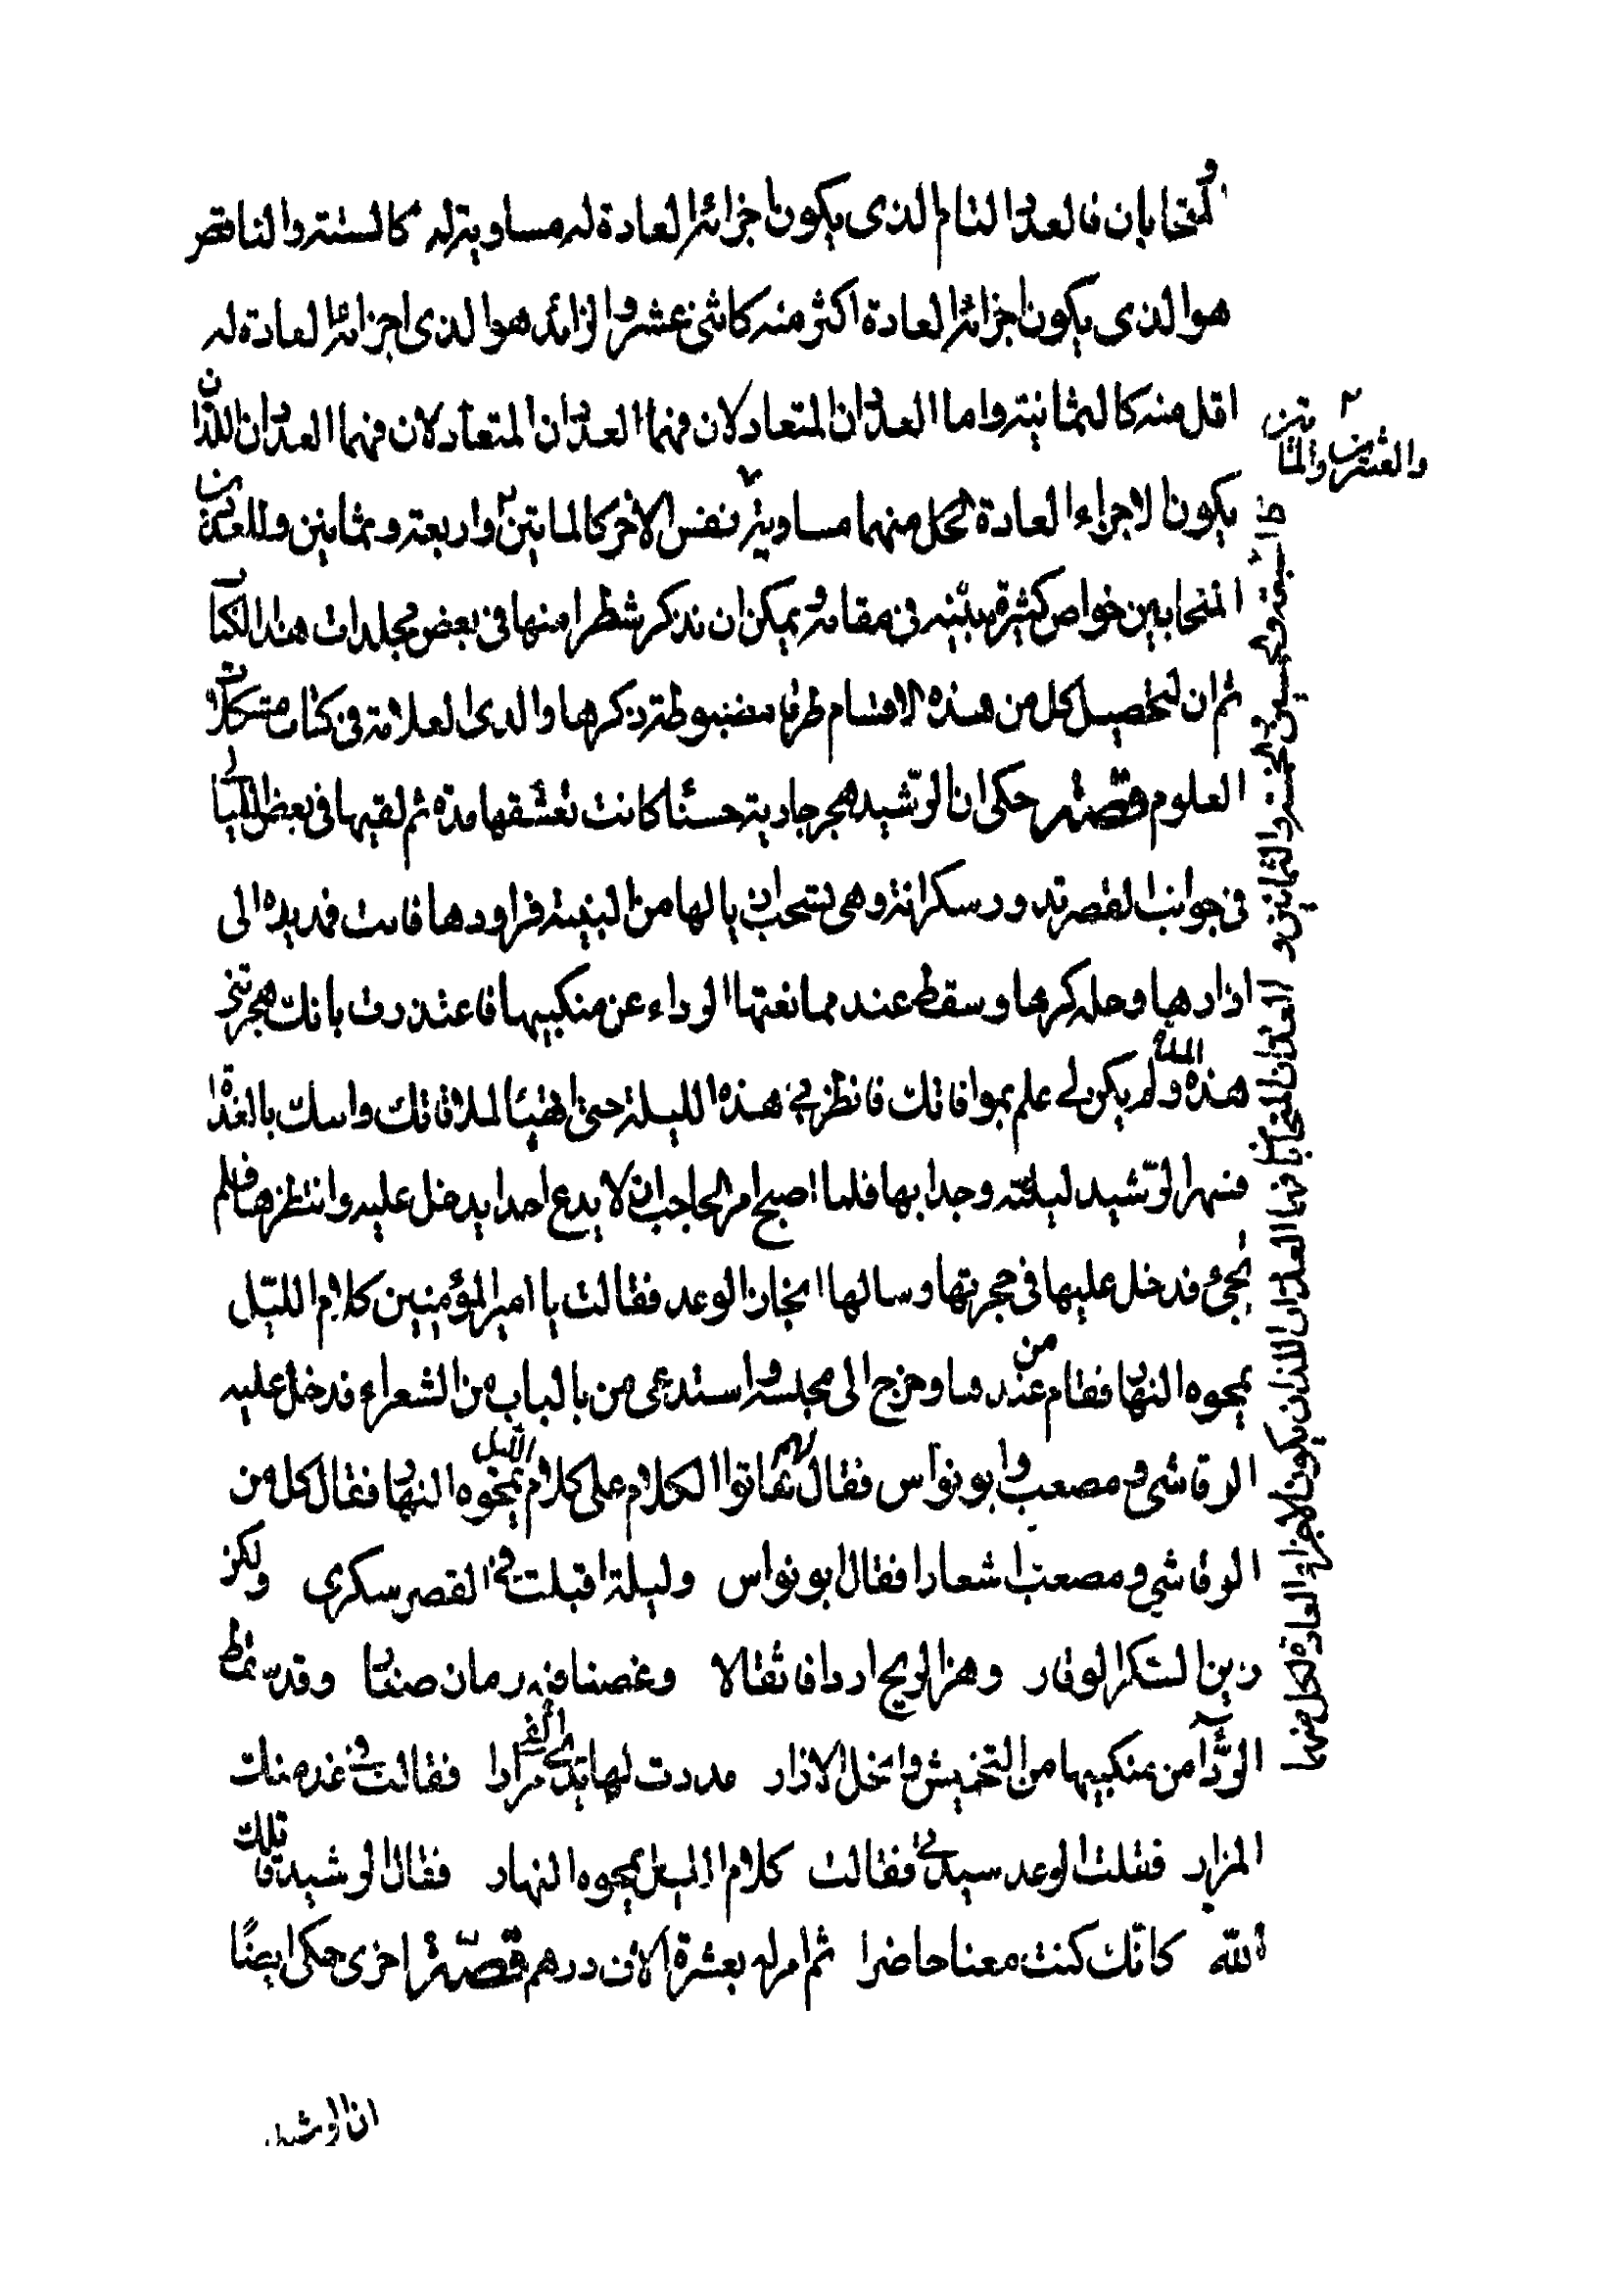 متحابان فالعدد التام الذى يكون اجزائه العادة له مساوية له كالستة والناقص
هو الذى يكون اجزائه العادة اكثر منه كاثنى عشر والزائد هو الذى اجزائه العادة له
اقل منه كالثمانية واما العددان المتعادلان فهما العددان المتعادلان فهما العددان اللذان
يكون الاجزاء العادة لكل منهما مساوية نفس الاخر كالماتين واربعة وثمانين وللعددين
المتحابين خواص كثيرة مبينه فى مقامه ويمكن ان نذكر شطرا منها فى بعض مجلدات هذا الكتاب
ثم ان لتحصيل كل من هذه الاقسام طرقا مضبوطة ذكرها والدى العلامة فى كتاب مشكلات
العلوم قصة حكى ان الرشيد هجر جارية حسنا كانت تعشقها مدة ثم لقيها فى بعض الليالي
فى جوانب القصر تدور سكرانة وهى تسحب اذيالها من التيه فراودها فابت فمد يده الى
ازارها وحله كرها وسقط عند ممانعتها الرداء عن منكبيها فاعتذرت بانك هجرتنى
هذه المدة ولم يكن لى علم بموافاتك فانظرنى هذه الليلة حتى اتهيئا لملاقاتك واتيك بالغداة
فسهر الرشيد ليلته وجدا بها فلما اصبح امر الحاجب ان لا يدع احدا يدخل عليه وانتظرها فلم
تجئ فدخل عليها فى حجرتها وسالها انجاز الوعد فقالت يا امير المؤمنين كلام الليل
يمحوه النهار فقام من عندها وخرج الى مجلسه واستدعى من بالباب من الشعراء فدخل عليه
الرقاشى ومصعب وابو نواس فقال لهم هاتوا الكلام على كلام الليل يمحوه النهار فقال كل من
الرقاشي ومصعب اشعارا فقال ابو نواس وليلة اقبلت فى القصر سكرى ولكن
زين السكر الوقار وهز الريح اردافا ثقالا وغصنا فيه رمان صغار وقد سقط
الردا من منكبيها من التخميش وانحل الازار مددت لها يدى مرادا فقالت فى غد منك
المزار فقلت الوعد سيدتى فقالت كلام الليل يمحوه النهار فقال الرشيد قاتلك
الله كانك كنت معنا حاضرا ثم امر له بعشرة الاف درهم قصة اخرى حكى ايضا
ان الرشيد
والعشرين والماتين
العددان المتحابان فهما العددان اللذان يكون الاجزاء العادة لكل منهما